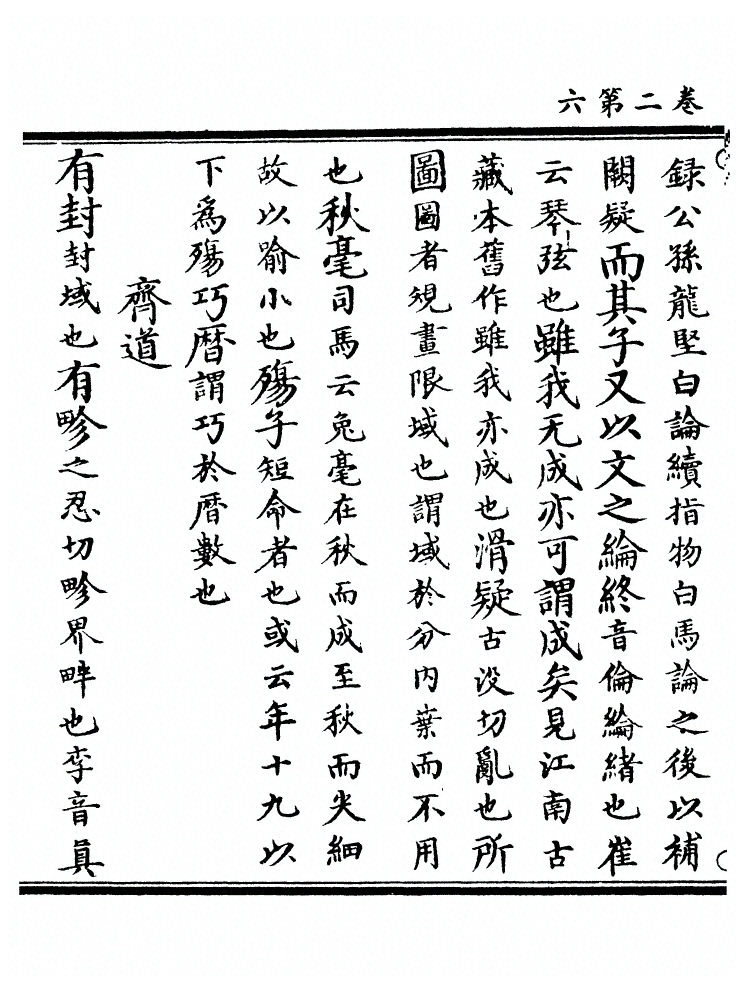 卷二第六
録公孫龍堅白論續指物白馬論之後以補
闕疑而其子又以文之綸終音倫綸緒也崔
云琴弦也雖我无成亦可謂成矣見江南古
藏本舊作雖我亦成也滑疑古没切亂也所
圖圖者規畫限域也謂域於分内棄而不用
也秋毫司馬云兔毫在秋而成至秋而失細
故以喻小也殤子短命者也或云年十九以
下為殤巧曆謂巧於曆數也
齊道
有封封域也有畛之忍切畛界畔也李音眞